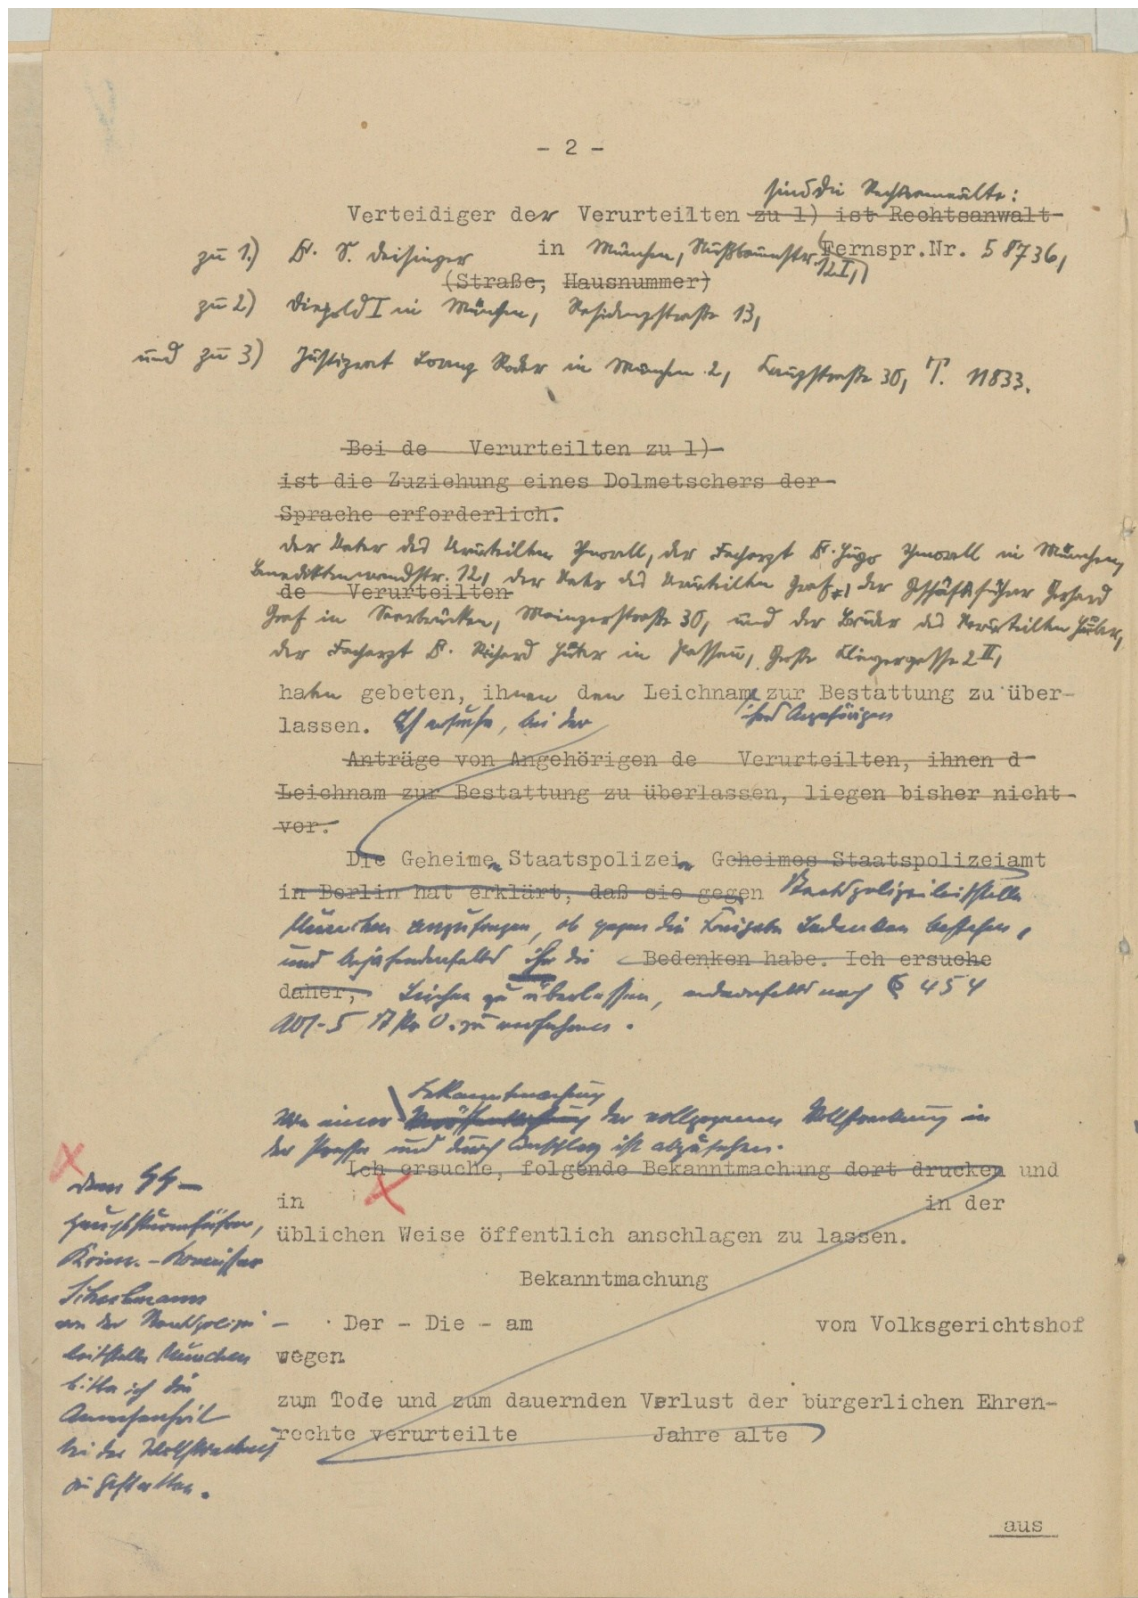 - 2 -
sind die Rechtsanwälte:
Verteidiger der Verurteilten zu 1) ist Rechtsanwalt
zu 1.) Dr. S. Deisinger in München, Nußbaumstr. 12 I, (Fernspr.Nr. 58736,
(Straße, Hausnummer)
zu 2) Diepold I in München, Residenzstraße 13,
und zu 3) Justizrat Lorenz Roder in München 2, 30, T. 11833.
Bei de Verurteilten zu 1)
ist die Zuziehung eines Dolmetschers der
Sprache erforderlich.
Der Vater des Verurteilten Schmorell, der Facharzt Dr. Hugo Schmorell in München,
Benediktenwandstr. 12, der Vater des Verurteilten Graf, der Geschäftsführer Gerhard
de Verurteilten
Graf in Saarbrücken, Mainzerstraße 30, und der Bruder des Verurteilten Huber,
der Facharzt Dr. Richard Huber in Passau, Große Klingergasse 2 II,
haben gebeten, ihnen den Leichnam zur Bestattung zu über-
lassen. Ich ersuche, bei der
ihres Angehörigen
Anträge von Angehörigen de Verurteilten, ihnen d
Leichnam zur Bestattung zu überlassen, liegen bisher nicht
vor.
Die Geheimen Staatspolizei Geheimes Staatspolizeiamt
in Berlin hat erklärt, daß sie gegen Staatspolizeileitstelle
München anzufragen, ob gegen die Freigabe Bedenken bestehen,
und bejahendenfalls ihr die Bedenken habe. Ich ersuche
daher, Leichen zu überlassen, andernfalls nach § 454
Abs. 5 StPO. zu verfahren.
Bekanntmachung
Von einer Veröffentlichung der vollzogenen Vollstreckung in
der Presse und durch Anschlag ist abzusehen.
Ich ersuche, folgende Bekanntmachung dort drucken und
in in der
üblichen Weise öffentlich anschlagen zu lassen.
Bekanntmachung
Der - Die - am vom Volksgerichtshof
wegen
zum Tode und zum dauernden Verlust der bürgerlichen Ehren-
rechte verurteilte Jahre alte
Dem SS-
Hauptsturmführer,
Krim.-Kommissar
von der Staatspolizei-
leitstelle München
bitte ich die
Anwesenheit
bei der Vollstreckung
zu gestatten.
aus